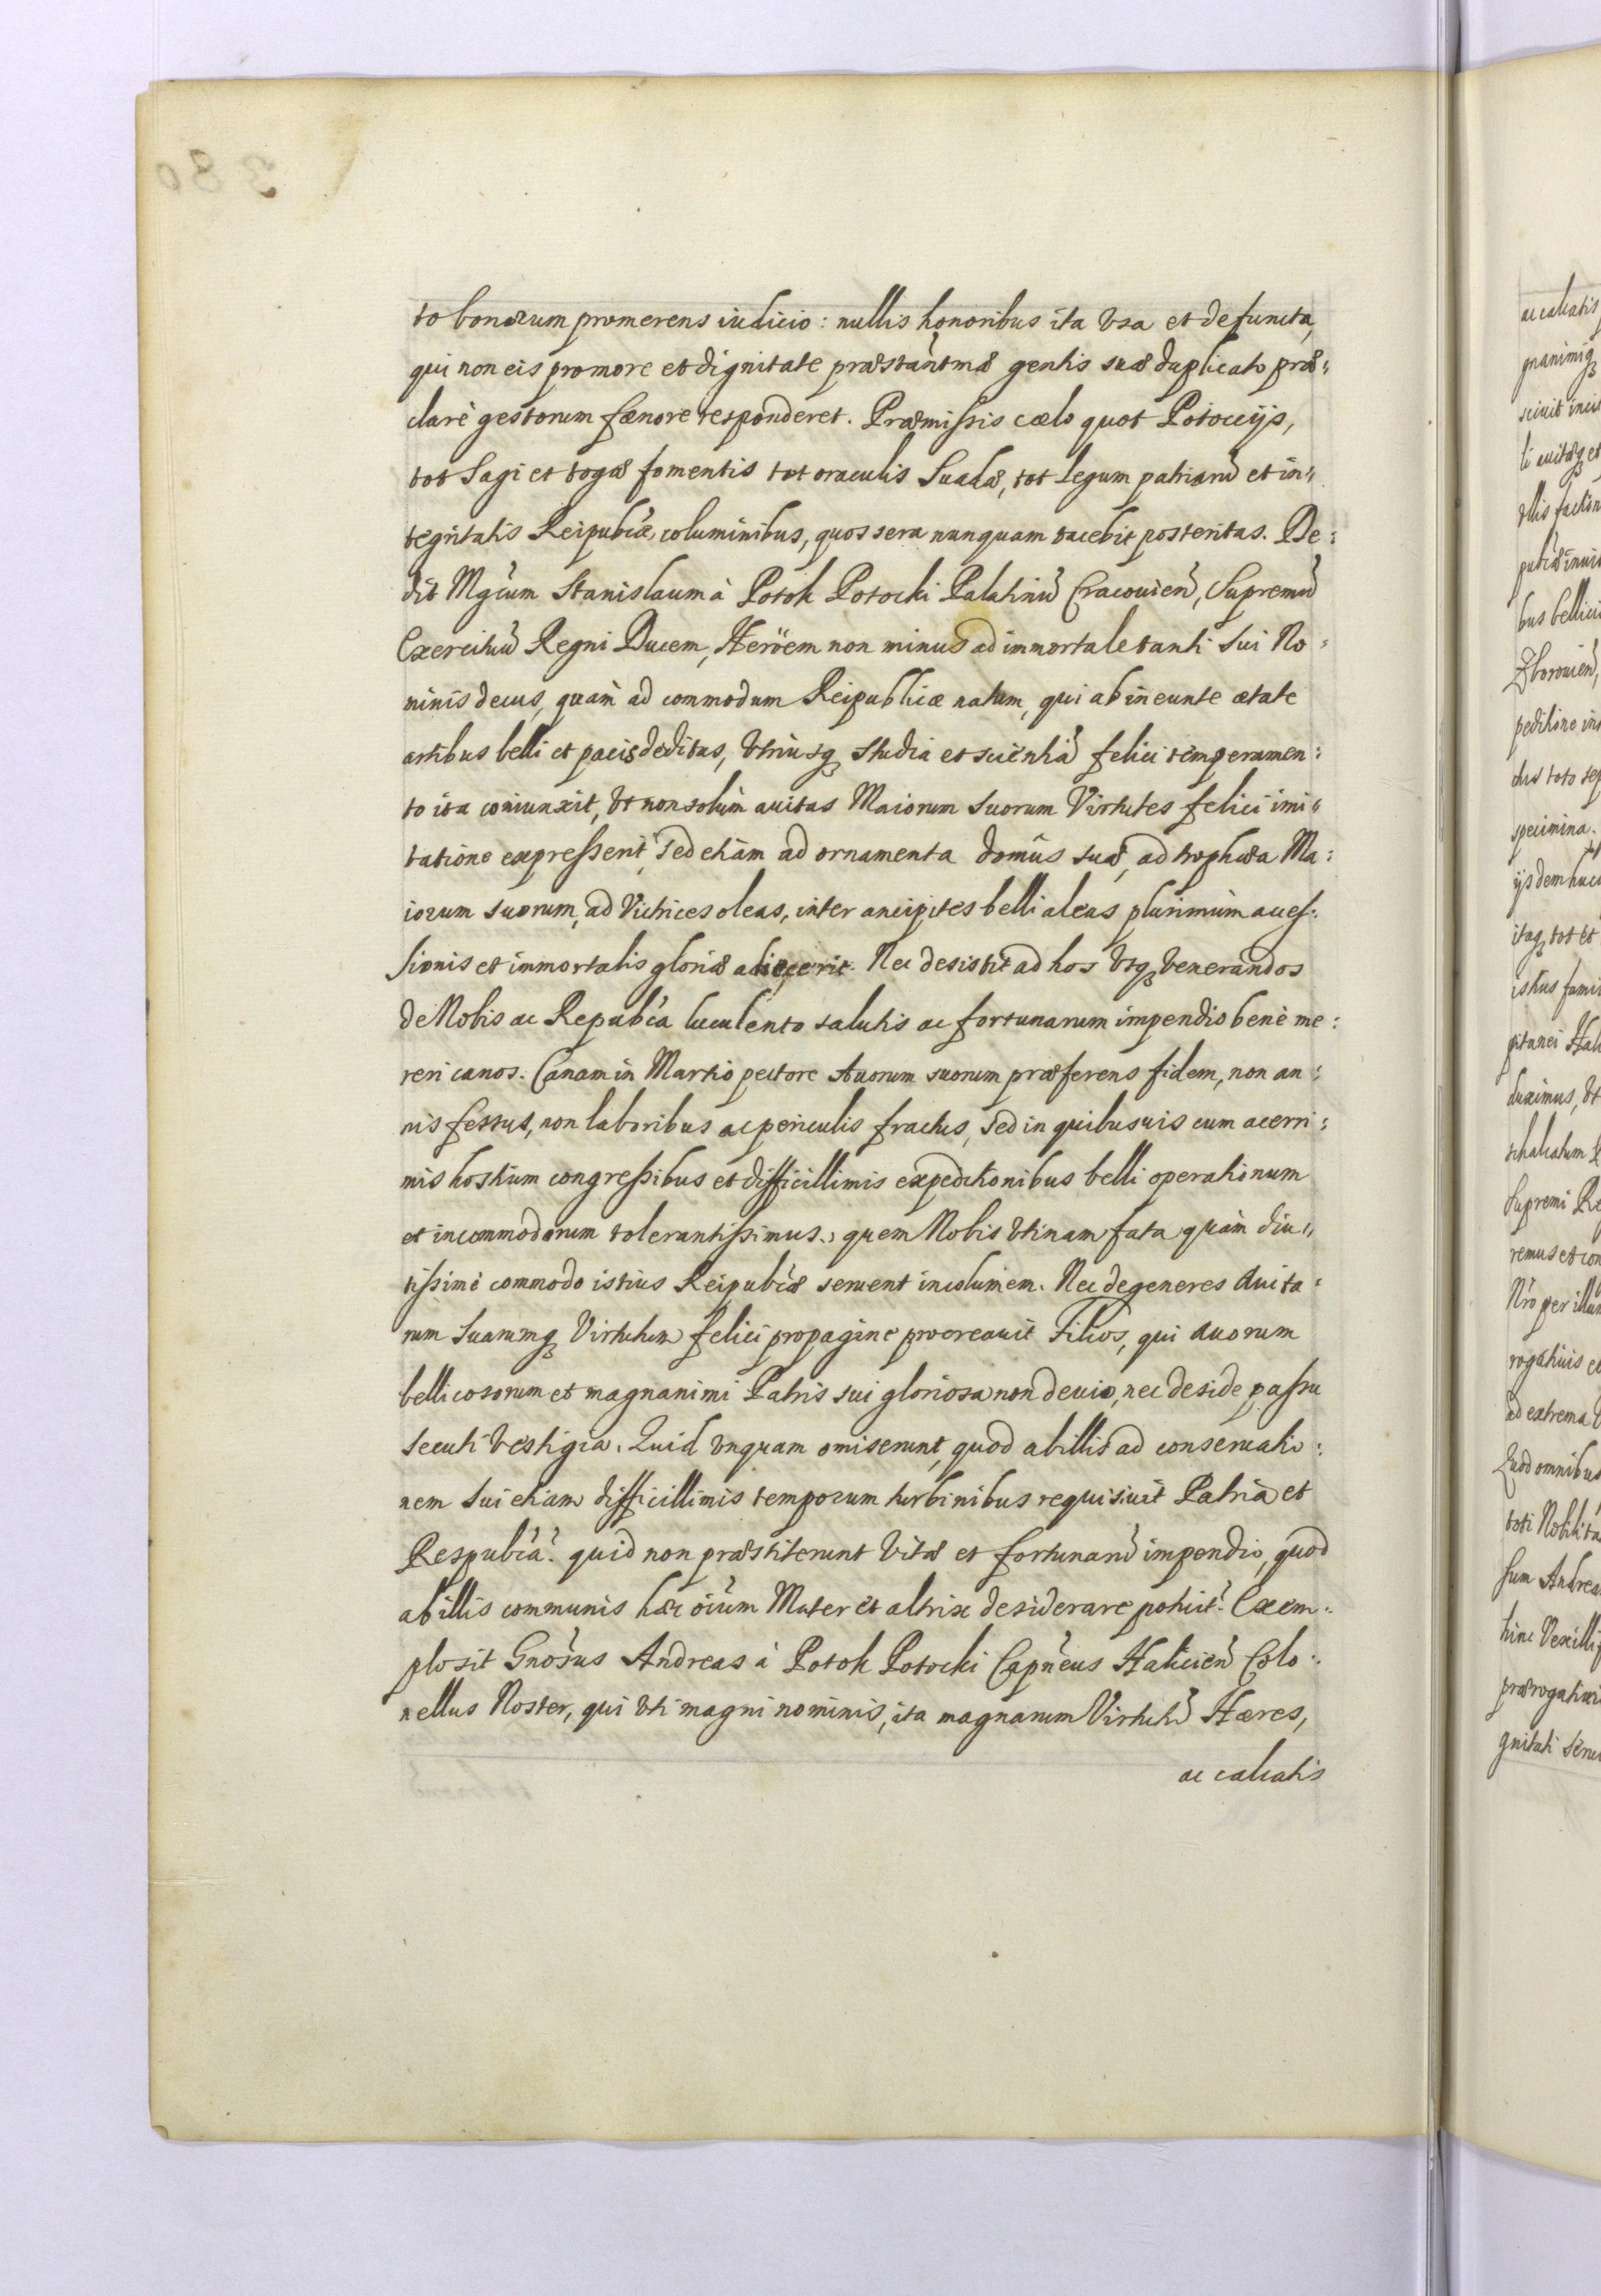 to bonorum promerens iudicio: nullis honoribus ita vsa et defuncta,
qui non eis pro more et dignitate præstantmæ gentis suæ duplicato præ=
clarè gestorum fænore responderet. Præmissis cælo quot Potocijs,
tot Sagi et togæ fomentis tot oraculis Suadæ, tot legum patriarū et in=
tegritatis Reipubcæ columinibus, quos sera nunquam tacebit posteritas. De=
dit Mgcum Stanislaum à Potok Potocki Palatinū Cracouien, Supremū
Exercituū Regni Ducem, Heröem non minus ad immortale tanti sui No=
minis decus, quàm ad commodum Reipublicæ natum, qui ab ineunte ætate
artibus belli et pacis deditus, vtriusq studia et scientiā felici temperamen=
to ita coniunxit, vt non solùm auitas Maiorum suorum Virtutes felici imi=
tatione expresserit, sed etiam ad ornamenta domûs suæ, ad trophæa Ma=
iorum suorum, ad Victrices oleas, inter ancipites belli aleas plurimùm acces=
sionis et immortalis gloriæ adiecerit. Nec desistit ad hos vsq venerandos
de Nobis ac Repubca luculento salutis ac fortunarum impendio benè me=
reri canos. Canam in Martio pectore Auorum suorum præferens fidem, non an=
nis fessus, non laboribus ac periculis fractus, sed in quibusuis cum acerri=
mis hostium congressibus et difficillimis expeditionibus belli operationum
et incommodorum tolerantissimus, quem Nobis vtinam fata quàm diu=
tissimè commodo istius Reipubcæ seruent incolumem. Nec degeneres Auita=
rum suarumq Virtutum felici propagine procreauit Filios, qui Auorum
bellicosorum et magnanimi Patris sui gloriosa non deuio, nec deside passu
secuti vestigia. Quid vnquam omiserunt, quod ab illis ad conseruatio=
nem sui etiam difficillimis temporum turbinibus requisiuit Patria et
Respubca? quid non præstiterunt vitæ et fortunarū impendio, quod
ab illis communis hæc oium Mater et altrix desiderare potuit? Exem=
plo sit Gnosus Andreas à Potok Potocki Capneus Halicien Colo=
nellus Noster, qui vti magni nominis, ita magnarum Virtutū Hæres,
ac calcatis
380
ac calcatis
gnanimiq
sciuit
li auitæq et
bus bellici
Zborouien,
peditione
dus toto
specimina.
ijsdem
itaq tot et
pitanei Hali
duximus, vt
schalcatum
Supremi Re
remus et con
Nro per illum
rogatiuis
ad extrema
Quod omnibus
toti Nobilita
sum Andrea
hinc Vexilli
prærogatiui
gnitati